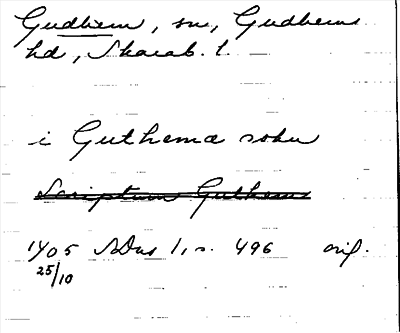 Gudhem, sn, Gudhems
hd, Skarab. l.
i Guthema sokn
Scriptum Guthem
1405 SDns 1, s. 496 orig.
25/10